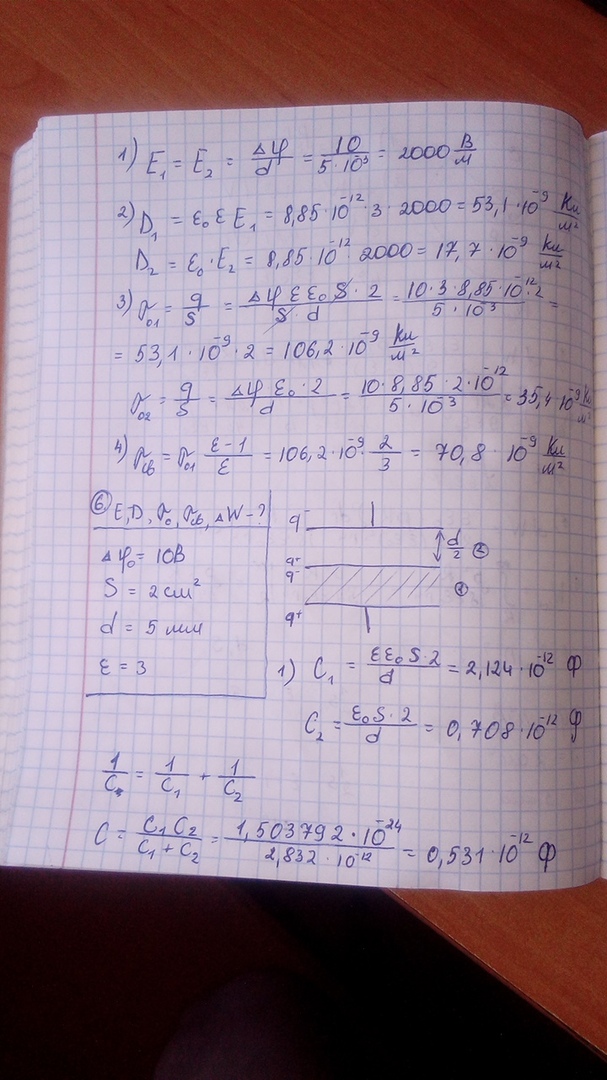 1) E₁ = E₂ = Δφ/d = 10/(5·10⁻³) = 2000 В/м
2) D₁ = ε₀ε E₁ = 8,85·10⁻¹²·3·2000 = 53,1·10⁻⁹ Кл/м²
D₂ = ε₀·E₂ = 8,85·10⁻¹²·2000 = 17,7·10⁻⁹ Кл/м²
3) σ₀₁ = q/S = (Δφ ε ε₀ S·2)/(S·d) = (10·3·8,85·10⁻¹²·2)/(5·10⁻³) =
= 53,1·10⁻⁹·2 = 106,2·10⁻⁹ Кл/м²
σ₀₂ = q/S = (Δφ ε₀·2)/d = (10·8,85·2·10⁻¹²)/(5·10⁻³) = 35,4·10⁻⁹ Кл/м²
4) σсв = σ₀₁ (ε-1)/ε = 106,2·10⁻⁹·2/3 = 70,8·10⁻⁹ Кл/м²
⑥ E, D, σ₀, σсв, ΔW-?
Δφ₀ = 10В
S = 2 см²
d = 5 мм
ε = 3
q⁻
d/2 ②
q⁺
q⁻
①
q⁺
1) C₁ = (εε₀S·2)/d = 2,124·10⁻¹² Ф
C₂ = (ε₀S·2)/d = 0,708·10⁻¹² Ф
1/C = 1/C₁ + 1/C₂
C = (C₁C₂)/(C₁+C₂) = (1,503792·10⁻²⁴)/(2,832·10⁻¹²) = 0,531·10⁻¹² Ф